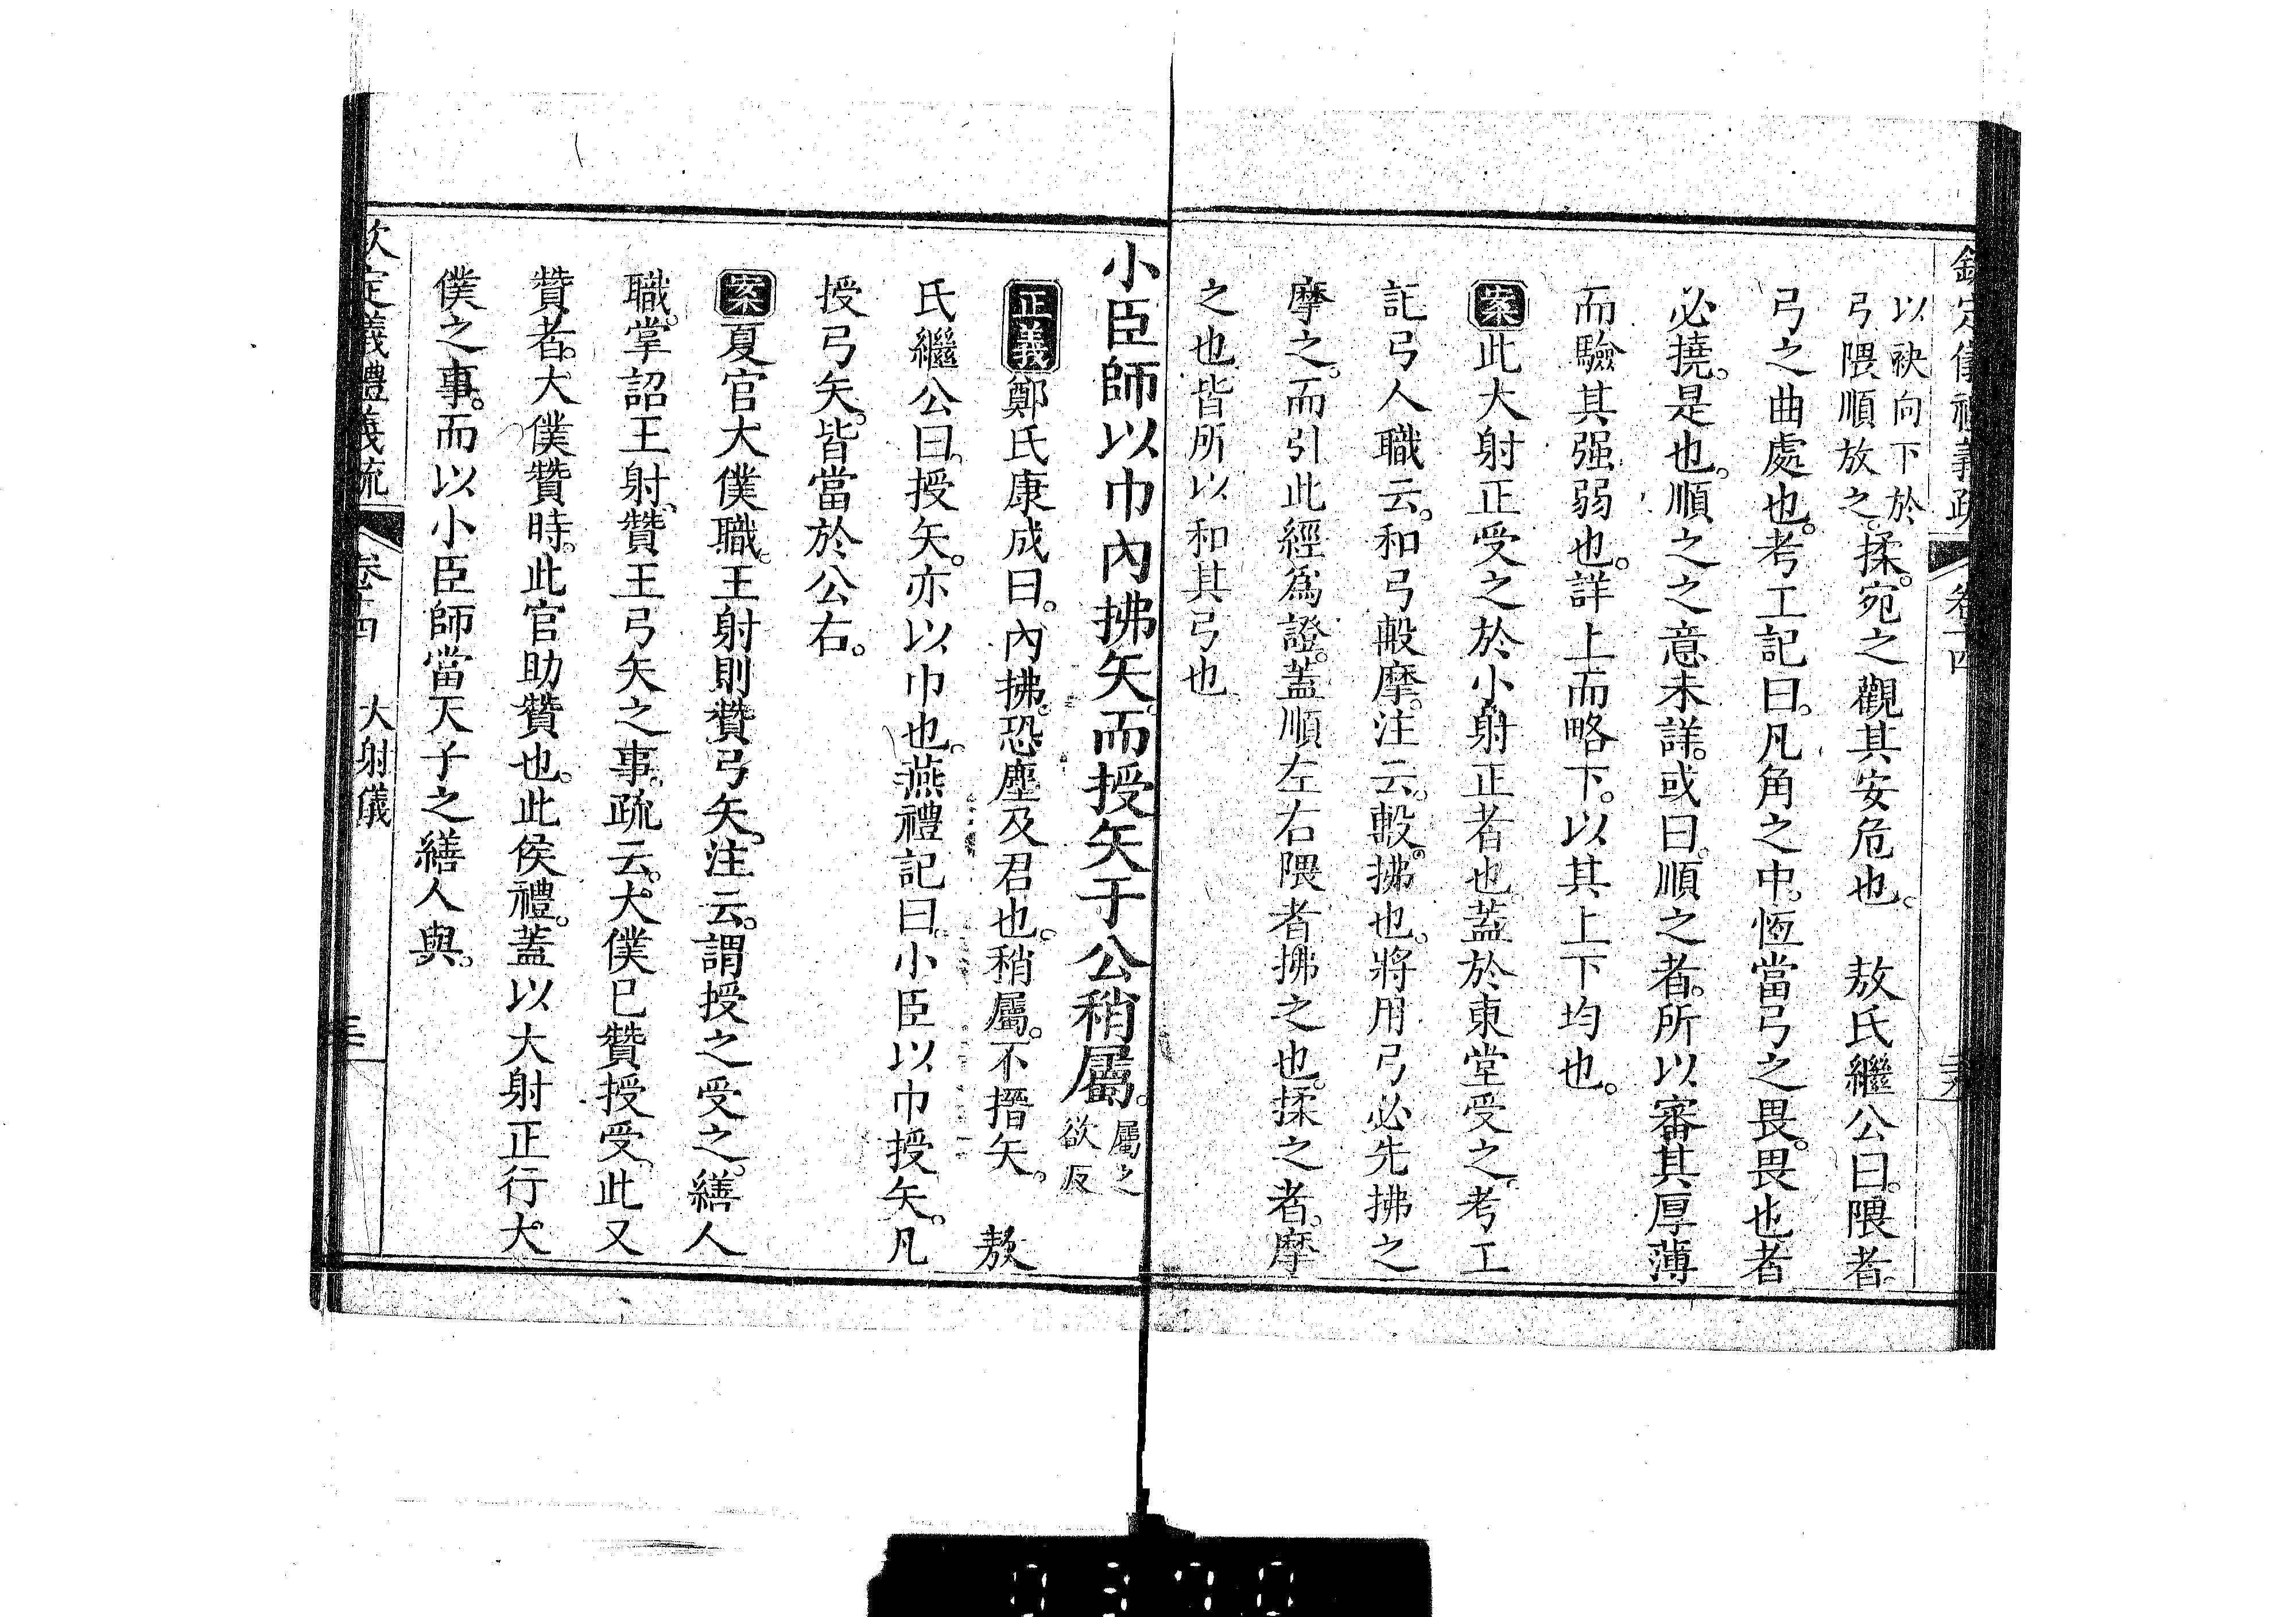 以袂向下於
弓隈順放之。揉宛之觀其安危也。　敖氏繼公曰。隈者
弓之曲處也。考工記曰。凡角之中。恆當弓之畏。畏也者
必撓。是也。順之之意未詳。或曰。順之者。所以審其厚薄
而驗其强弱也。詳上而略下。以其上下均也。
案此大射正受之於小射正者也蓋於東堂受之。考工
記弓人職云。和弓㲉摩。注云。㲉。拂也。將用弓必先拂之
摩之。而引此經爲證。蓋順左右隈者拂之也。揉之者。摩
之也皆所以和其弓也
小臣師以巾內拂矢而授矢于公稍屬。屬之
欲反
正義鄭氏康成曰。內拂。恐塵及君也。稍屬。不搢矢。　敖
氏繼公曰。授矢。亦以巾也。燕禮記曰。小臣以巾授矢。凡
授弓矢。皆當於公右。
案夏官大僕職。王射則贊弓矢。注云。謂授之受之。繕人
職。掌詔王射。贊王弓矢之事。疏云。大僕已贊授受。此又
贊者。大僕贊時。此官助贊也。此侯禮。蓋以大射正行大
僕之事。而以小臣師當天子之繕人與。
欽定義禮義疏　卷十四　大射儀